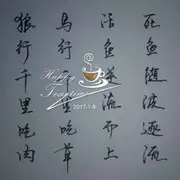 狼行千里吃肉
馬行吃草
活鱼流而上
死鱼随波逐流
Happy
Teatime
2017-1-9